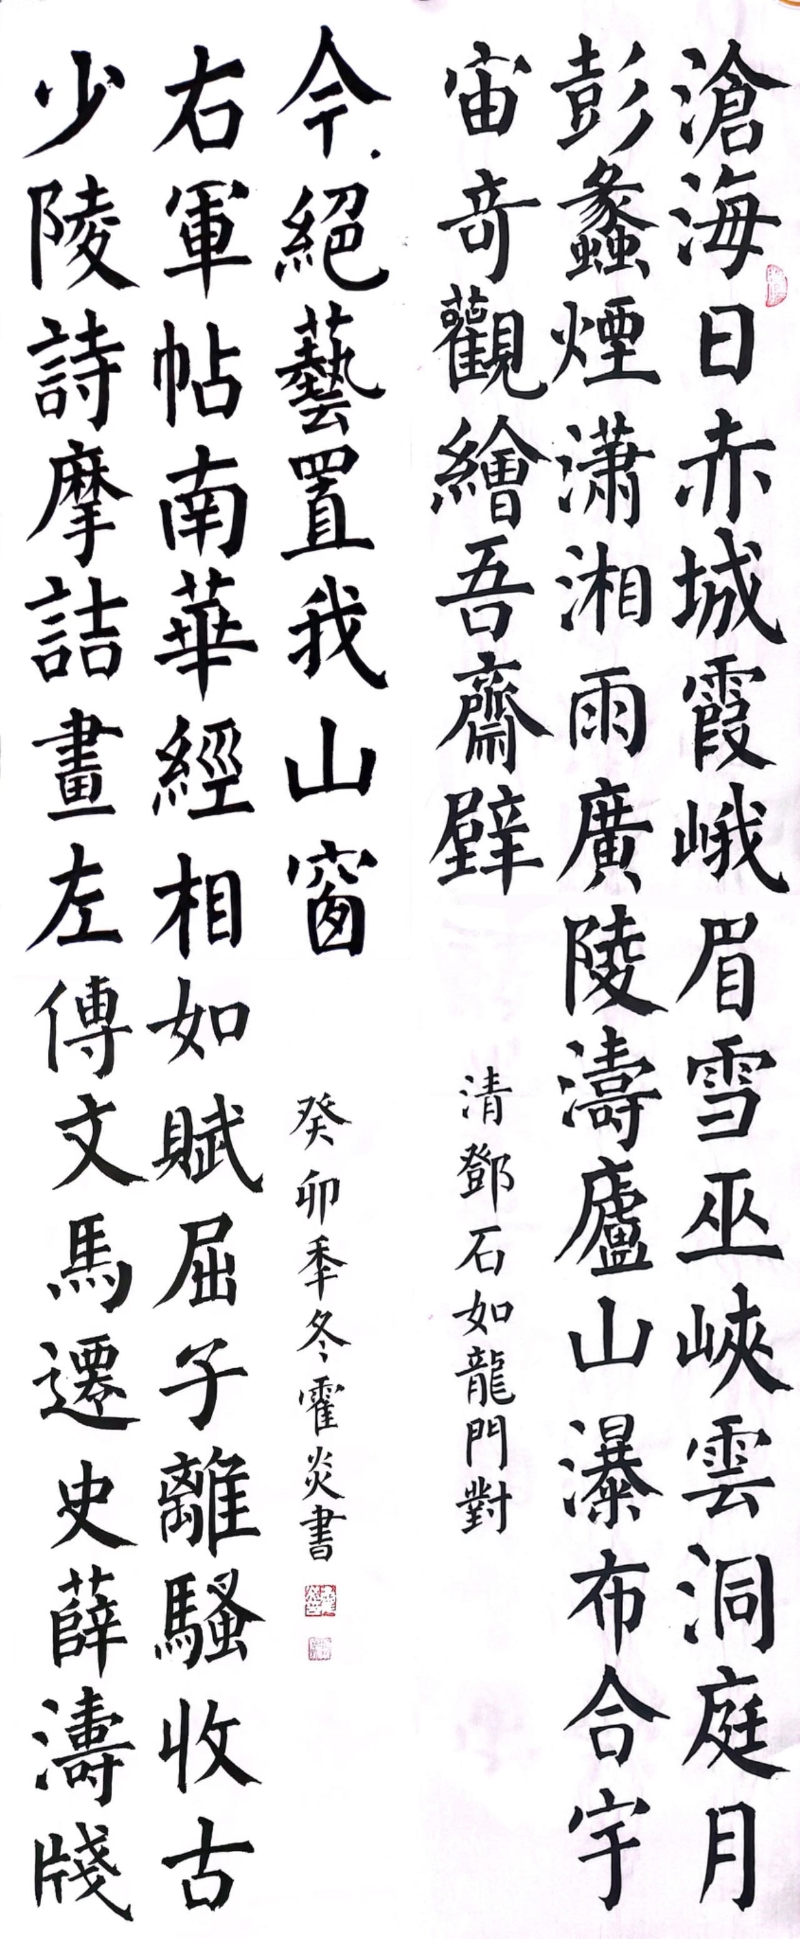 滄海日赤城霞峨眉雪巫峽雲洞庭月
彭蠡煙潇湘雨廣陵濤廬山瀑布合宇
宙奇觀繪吾齋壁
清鄧石如龍門對
少陵詩摩詰畫左傳文馬遷史薛濤牋
右軍帖南華經相如賦屈子離騷收古
今絕藝置我山窗
癸卯季冬霍炎書